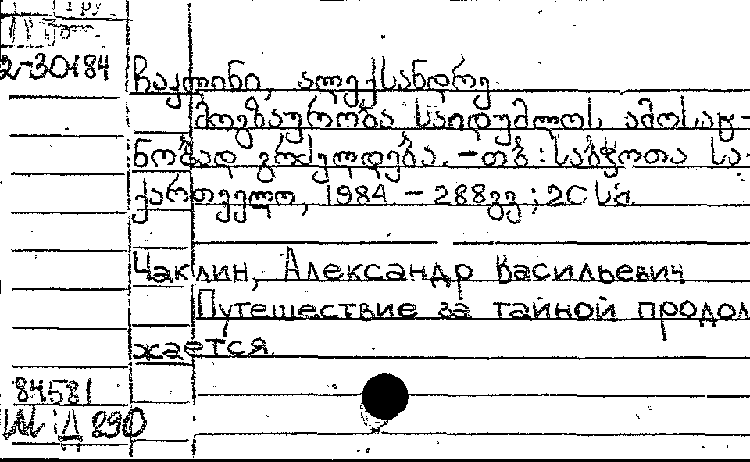 2-30184
ჩაკლინი, ალექსანდრე
მოგზაურობა საიდუმლოს ამოსაც-
ნობად გრძელდება. – თბ : საბჭოთა სა-
ქართველო, 1984. – 288გვ ; 20 სმ.
Чаклин, Александр Васильевич
Путешествие за тайной продол
жается
84581
Д 890